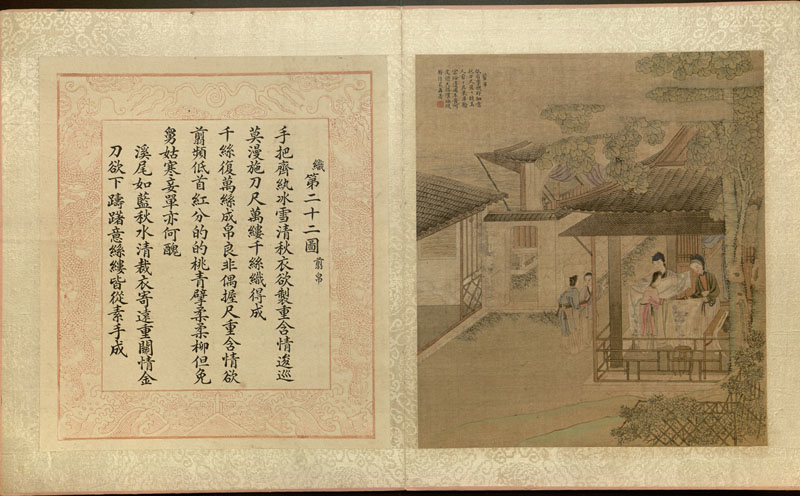 織第二十二圖 剪帛
手把齊紈冰雪清秋衣欲製重含情逡巡
莫漫施刀尺萬縷千絲織得成
千絲復萬絲成帛良非偶握尺重含情欲
剪頻低首紅分的的桃青擘柔柔柳但免
舅姑寒妾單亦何醜
溪尾如藍秋水清裁衣寄遠重關情金
刀欲下躊躇意絲縷皆從素手成
剪帛